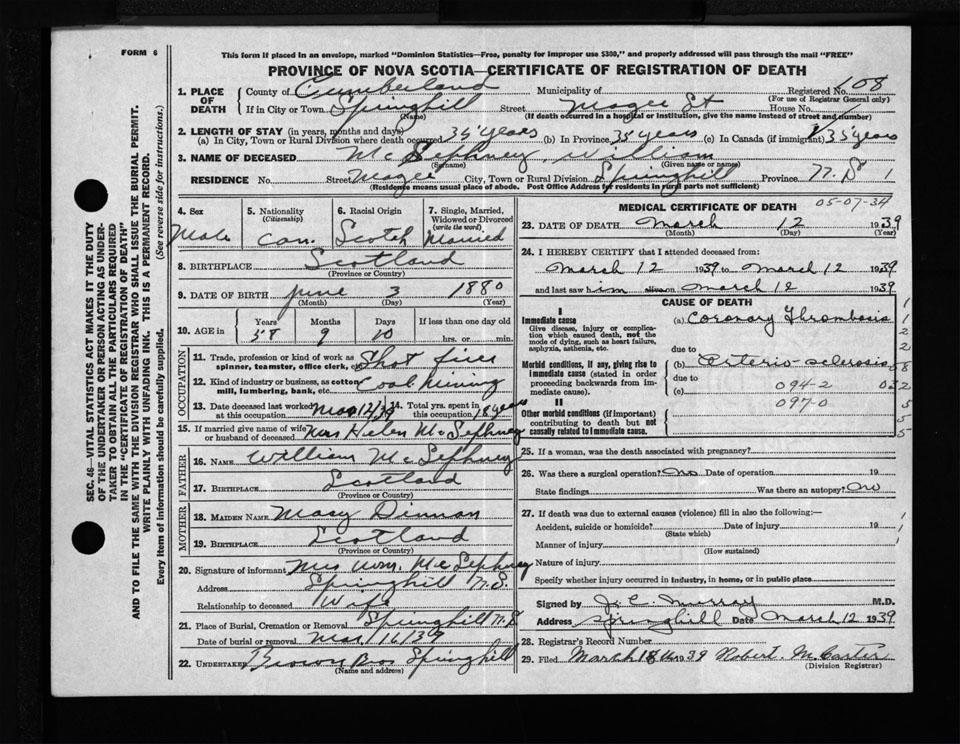 FORM 6
This form if placed in an envelope, marked "Dominion Statistics—Free, penalty for improper use $300," and properly addressed will pass through the mail "FREE"
PROVINCE OF NOVA SCOTIA—CERTIFICATE OF REGISTRATION OF DEATH
SEC. 46—VITAL STATISTICS ACT MAKES IT THE DUTY
OF THE UNDERTAKER OR PERSON ACTING AS UNDER-
TAKER TO OBTAIN ALL THE PARTICULARS REQUIRED
IN THE "CERTIFICATE OF REGISTRATION OF DEATH"
AND TO FILE THE SAME WITH THE DIVISION REGISTRAR WHO SHALL ISSUE THE BURIAL PERMIT.
WRITE PLAINLY WITH UNFADING INK. THIS IS A PERMANENT RECORD.
Every item of information should be carefully supplied. (See reverse side for instructions.)
1. PLACE OF DEATH
County of Cumberland Municipality of Registered No. 108
(For use of Registrar General only)
If in City or Town Springhill Street Magee St House No.
(Name) (If death occurred in a hospital or institution, give its name instead of street and number)
2. LENGTH OF STAY (in years, months and days)
(a) In City, Town or Rural Division where death occurred 35 years (b) In Province 35 years (c) In Canada (if immigrant) 35 years
3. NAME OF DECEASED McSephney, William
(Surname) (Given name or names)
RESIDENCE No. Street Magee City, Town or Rural Division Springhill Province N.S. 1
(Residence means usual place of abode. Post Office Address for residents in rural parts not sufficient)
05-07-34
4. Sex Male
5. Nationality (Citizenship) Can.
6. Racial Origin Scotch
7. Single, Married, Widowed or Divorced (write the word) Married
8. BIRTHPLACE Scotland
(Province or Country)
9. DATE OF BIRTH June 3 1880
(Month) (Day) (Year)
10. AGE in Years Months Days If less than one day
58 9 10 hrs. or min.
OCCUPATION
11. Trade, profession or kind of work as spinner, teamster, office clerk, etc. Shot firer
12. Kind of industry or business, as cotton mill, lumbering, bank, etc. Coal mining
13. Date deceased last worked at this occupation Mar 12/39
14. Total yrs. spent in this occupation 18 years
15. If married give name of wife or husband of deceased Mrs Helen McSephney
FATHER
16. NAME William McSephney
17. BIRTHPLACE Scotland
(Province or Country)
MOTHER
18. MAIDEN NAME Macy Dinnan
19. BIRTHPLACE Scotland
(Province or Country)
20. Signature of informant Mrs Wm. McSephney
Address Springhill N.S.
Relationship to deceased Wife
21. Place of Burial, Cremation or Removal Springhill N.S
Date of burial or removal Mar 16/39
22. UNDERTAKER Brown Bros Springhill
(Name and address)
MEDICAL CERTIFICATE OF DEATH
23. DATE OF DEATH March 12 1939
(Month) (Day) (Year)
24. I HEREBY CERTIFY that I attended deceased from:
March 12 1939 to March 12 1939
and last saw him alive on March 12 1939
CAUSE OF DEATH
I
Immediate cause (a) Coronary Thrombosis
Give disease, injury or complication which caused death, not the mode of dying, such as heart failure, asphyxia, asthenia, etc.
due to
Morbid conditions, if any, giving rise to immediate cause (stated in order proceeding backwards from immediate cause).
(b) Arterio-sclerosis
due to 094-2
(c) 097-0
II
Other morbid conditions (if important) contributing to death but not causally related to immediate cause.
25. If a woman, was the death associated with pregnancy?
26. Was there a surgical operation? no Date of operation 19
State findings Was there an autopsy? no
27. If death was due to external causes (violence) fill in also the following:—
Accident, suicide or homicide? Date of injury 19
(State which)
Manner of injury
(How sustained)
Nature of injury
Specify whether injury occurred in industry, in home, or in public place
Signed by J. C. Murray M.D.
Address Springhill Date March 12 1939
28. Registrar's Record Number
29. Filed March 1939 Robert McCarter
(Division Registrar)